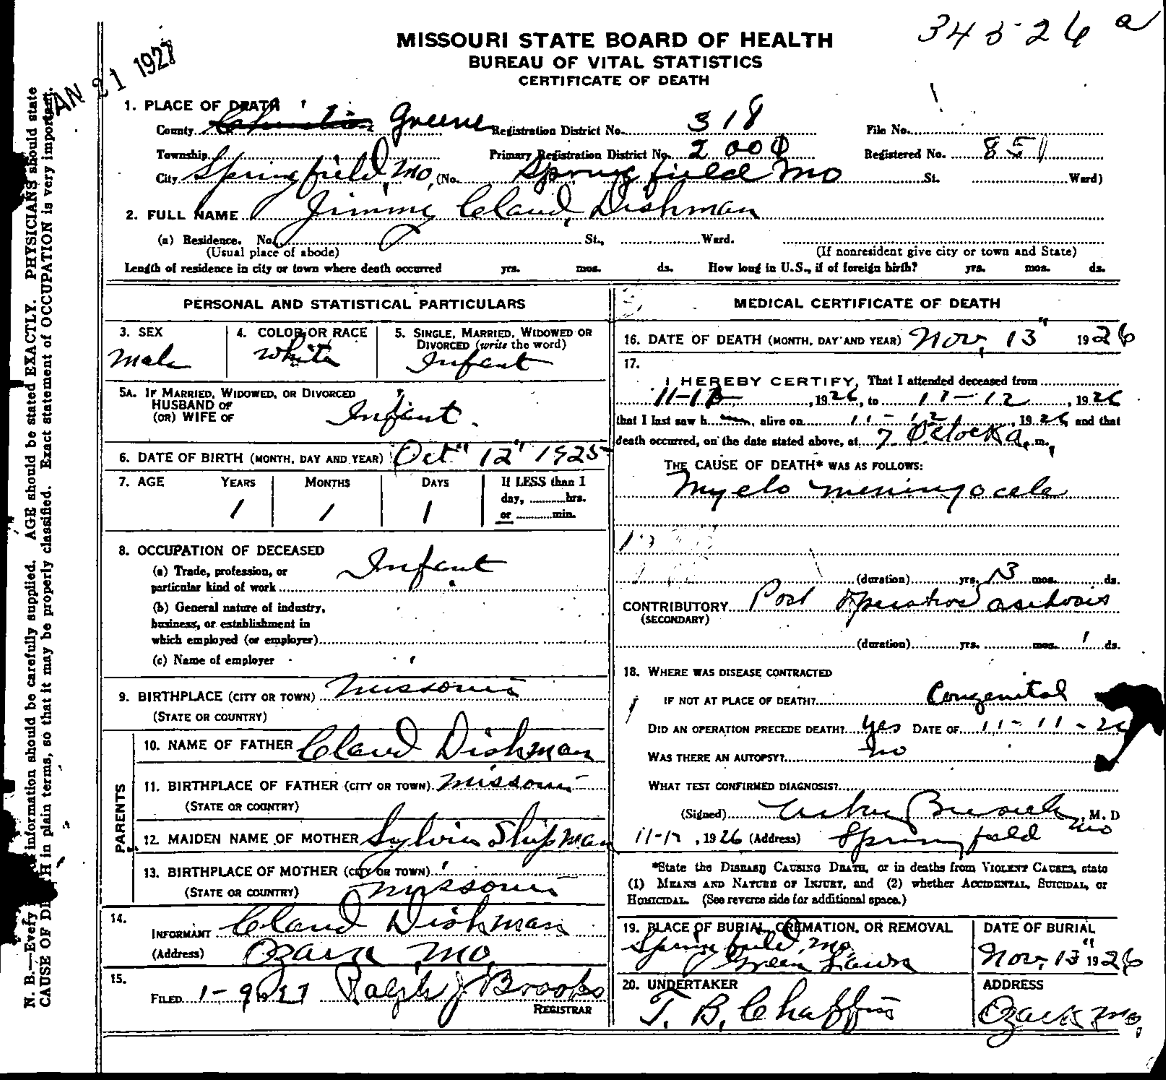 34526 a
JAN 21 1927
MISSOURI STATE BOARD OF HEALTH
BUREAU OF VITAL STATISTICS
CERTIFICATE OF DEATH
1. PLACE OF DEATH
County Christian Greene Registration District No. 318 File No.
Township Primary Registration District No. 2000 Registered No. 851
City Springfield, Mo, (No. Springfield Mo St. Ward)
2. FULL NAME Jimmy Claud, Dishman
(a) Residence. No. St., Ward.
(Usual place of abode) (If nonresident give city or town and State)
Length of residence in city or town where death occurred yrs. mos. ds. How long in U.S., if of foreign birth? yrs. mos. ds.
PERSONAL AND STATISTICAL PARTICULARS
3. SEX
male
4. COLOR OR RACE
white
5. SINGLE, MARRIED, WIDOWED OR
DIVORCED (write the word)
Infant
5A. IF MARRIED, WIDOWED, OR DIVORCED
HUSBAND OF
(OR) WIFE OF Infant.
6. DATE OF BIRTH (MONTH, DAY AND YEAR) Oct" 12" 1925
7. AGE YEARS MONTHS DAYS If LESS than 1
day, hrs.
1 1 1 or min.
8. OCCUPATION OF DECEASED
(a) Trade, profession, or
particular kind of work Infant
(b) General nature of industry,
business, or establishment in
which employed (or employer)
(c) Name of employer
9. BIRTHPLACE (CITY OR TOWN) Missouri
(STATE OR COUNTRY)
PARENTS
10. NAME OF FATHER Claud Dishman
11. BIRTHPLACE OF FATHER (CITY OR TOWN) Missouri
(STATE OR COUNTRY)
12. MAIDEN NAME OF MOTHER Sylvia Shipman
13. BIRTHPLACE OF MOTHER (CITY OR TOWN)
(STATE OR COUNTRY) Missouri
14.
INFORMANT Claud Dishman
(Address) Ozark Mo.
15.
FILED 1-9 1927 Ralph J Brooks
REGISTRAR
MEDICAL CERTIFICATE OF DEATH
16. DATE OF DEATH (MONTH, DAY AND YEAR) Nov, 13" 1926
17.
I HEREBY CERTIFY, That I attended deceased from
11-12, 1926, to 11-12, 1926
that I last saw h alive on 11-12, 1926, and that
death occurred, on the date stated above, at 7 Oclock a. m.
THE CAUSE OF DEATH* WAS AS FOLLOWS:
Myelo meningocele
(duration) yrs. 13 mos. ds.
CONTRIBUTORY Post operative acidosis
(SECONDARY)
(duration) yrs. mos. 1 ds.
18. WHERE WAS DISEASE CONTRACTED
IF NOT AT PLACE OF DEATH? Congenital
DID AN OPERATION PRECEDE DEATH? yes DATE OF 11-11-26
WAS THERE AN AUTOPSY? no
WHAT TEST CONFIRMED DIAGNOSIS?
(Signed) , M. D
11-17, 1926 (Address) Springfield Mo
*State the DISEASE CAUSING DEATH, or in deaths from VIOLENT CAUSES, state
(1) MEANS AND NATURE OF INJURY, and (2) whether ACCIDENTAL, SUICIDAL, or
HOMICIDAL. (See reverse side for additional space.)
19. PLACE OF BURIAL, CREMATION, OR REMOVAL
Springfield Mo
Green Lawn
DATE OF BURIAL
Nov, 13" 1926
20. UNDERTAKER
T. B. Chaffin
ADDRESS
Ozark Mo,
N. B.—Every information should be carefully supplied. AGE should be stated EXACTLY. PHYSICIANS should state
CAUSE OF DEATH in plain terms, so that it may be properly classified. Exact statement of OCCUPATION is very important.